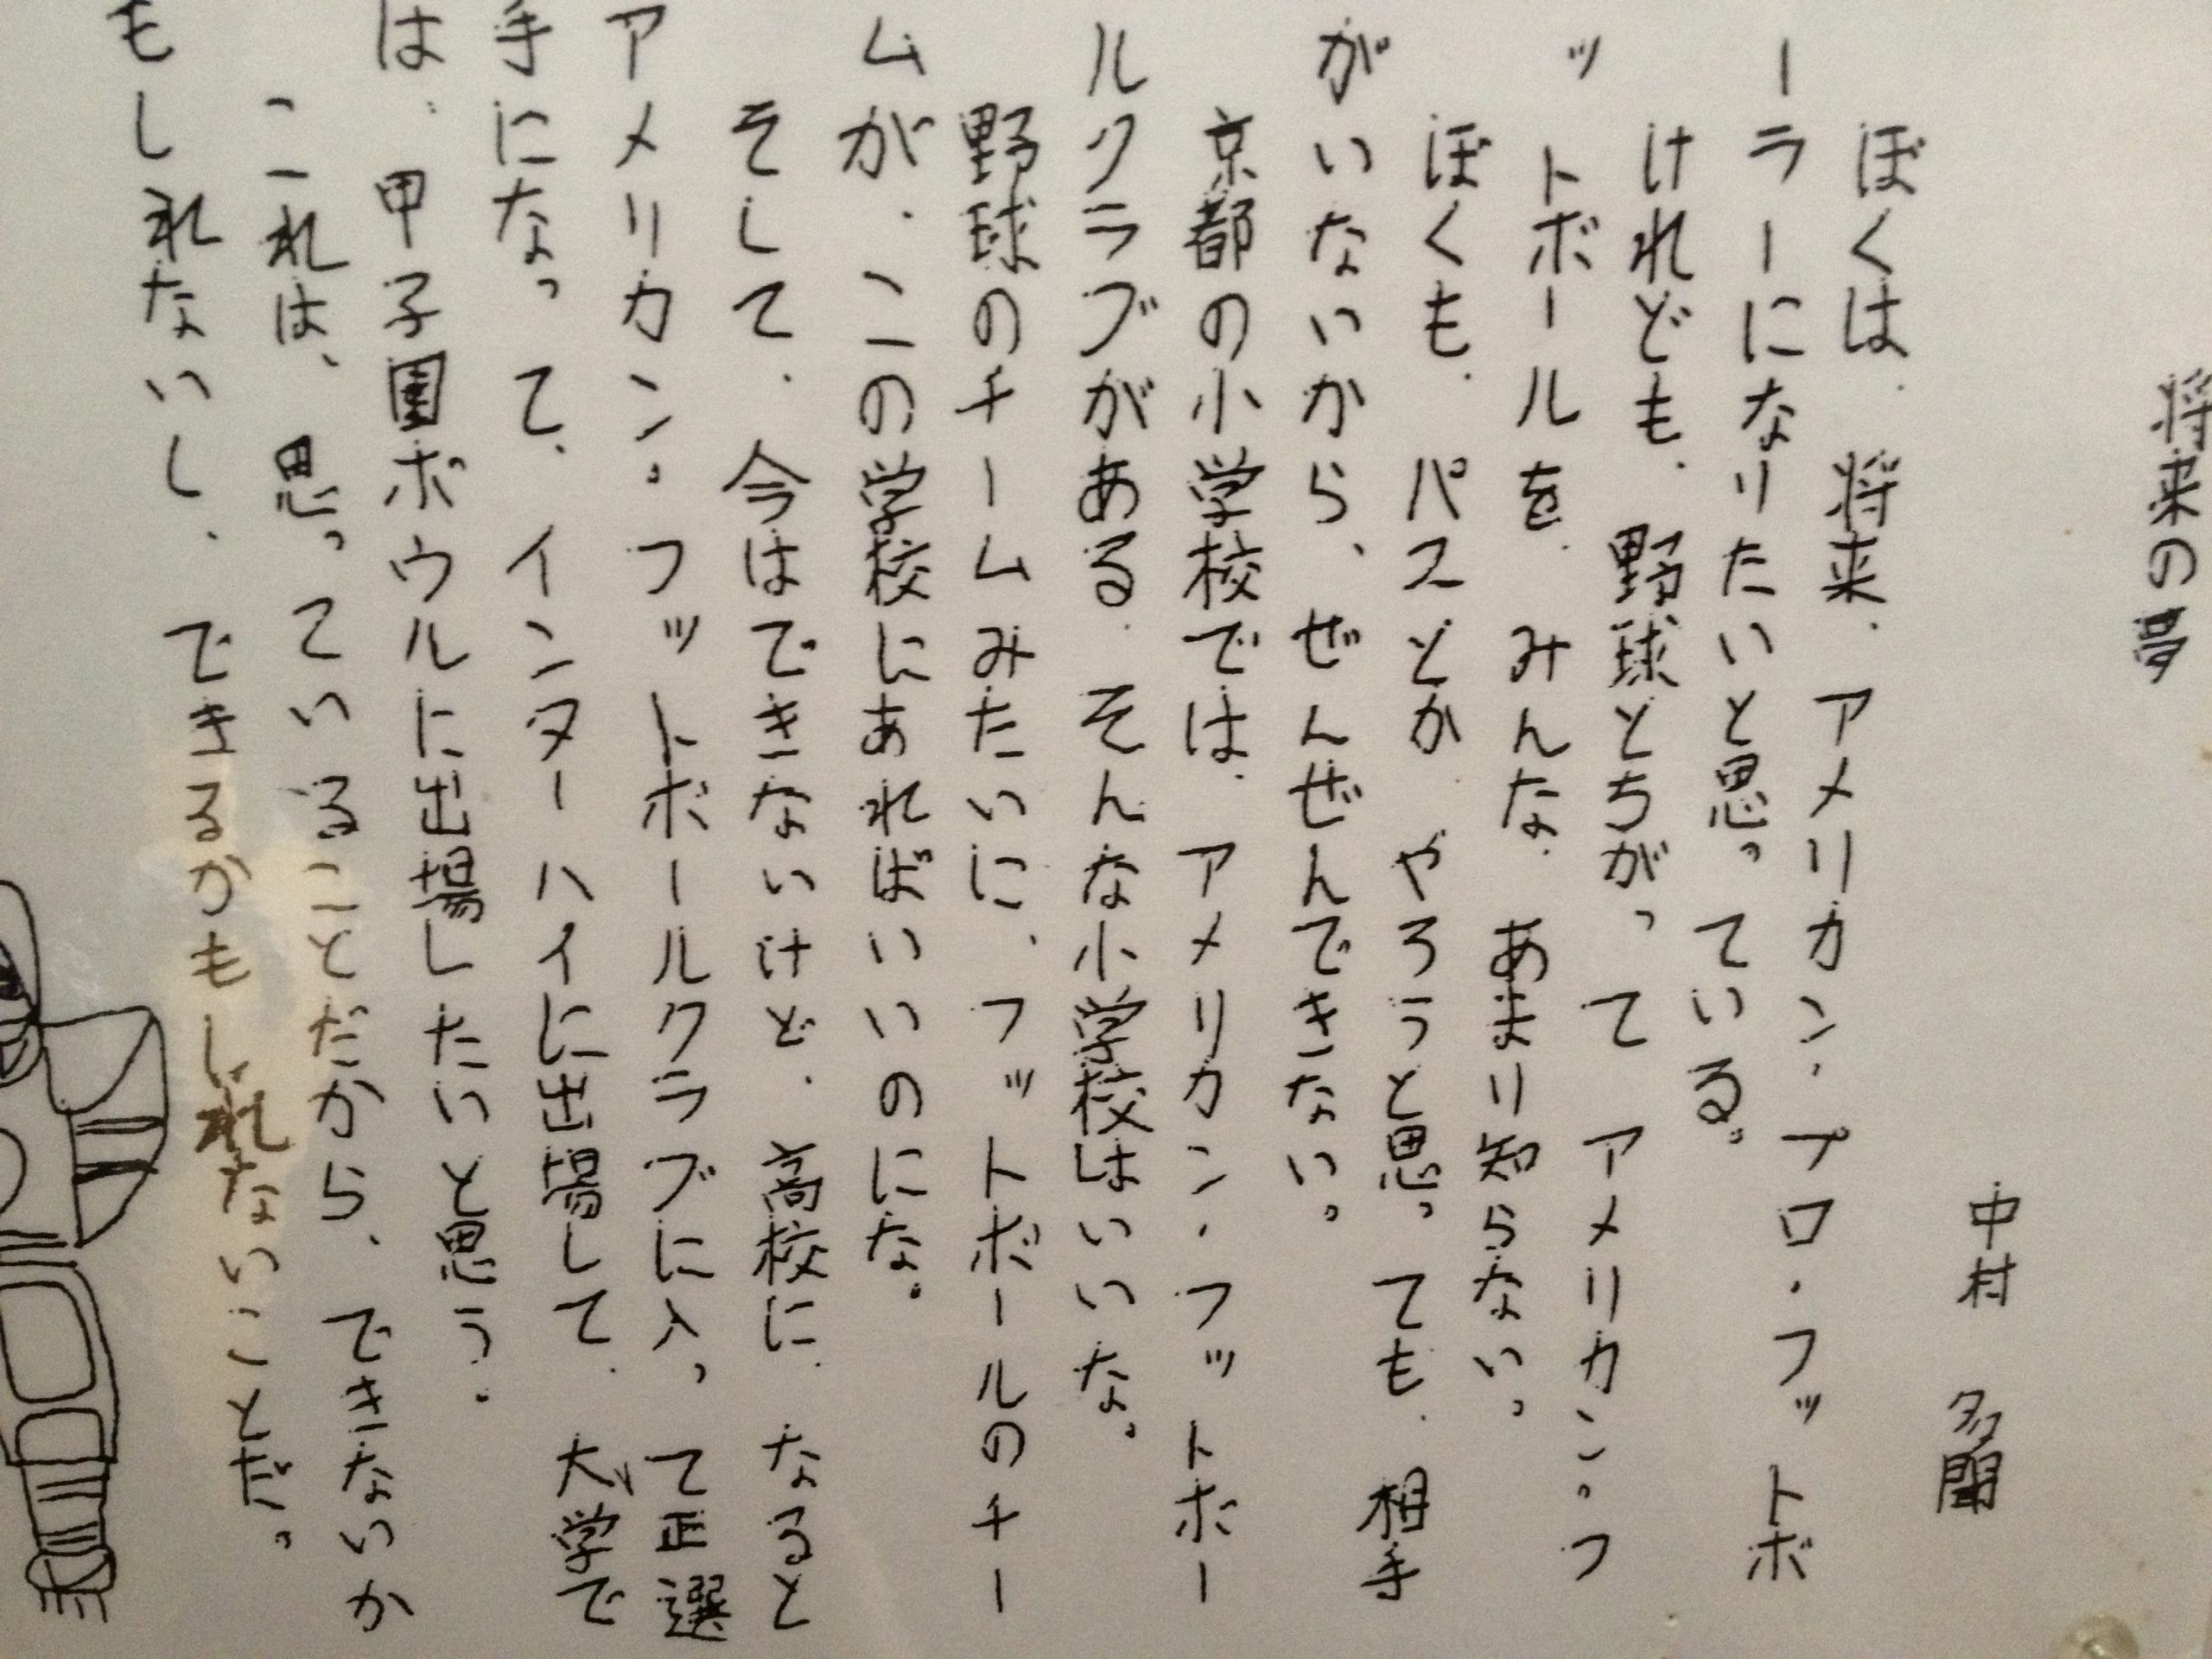 将来の夢
中村 多聞
ぼくは、将来、アメリカン・プロ・フットボ
ーラーになりたいと思っている。
けれども、野球とちがって アメリカン・フ
ットボールを、みんな、あまり知らない。
ぼくも、パスとか、やろうと思っても、相手
がいないから、ぜんぜんできない。
京都の小学校では、アメリカン・フットボー
ルクラブがある。そんな小学校はいいな。
野球のチームみたいに、フットボールのチー
ムが、この学校にあればいいのにな。
そして、今はできないけど、高校に、なると
アメリカン・フットボールクラブに入って正選
手になって、インターハイに出場して、大学で
は、甲子園ボウルに出場したいと思う。
これは、思っていることだから、できないか
もし れないし、できるかもしれないことだ。